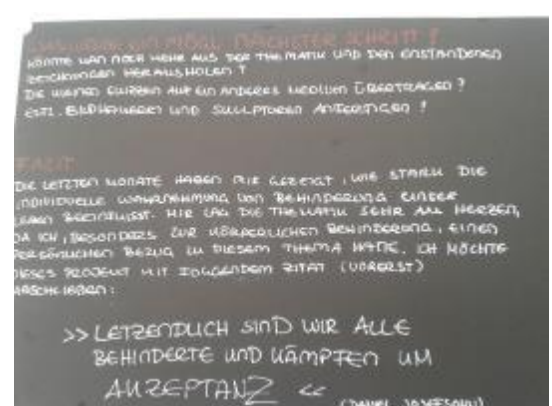 WAS WÄRE EIN MÖGL. NÄCHSTER SCHRITT?
KÖNNTE MAN NOCH MEHR AUS DER THEMATIK UND DEN ENSTANDENEN
ZEICHNUNGEN HERAUSHOLEN?
DIE KLEINEN SKIZZEN AUF EIN ANDERES MEDIUM ÜBERTRAGEN?
EVTL. BILDHAUEREI UND SKULPTUREN ANFERTIGEN?
FAZIT
DIE LETZTEN MONATE HABEN MIR GEZEIGT, WIE STARK DIE
INDIVIDUELLE WAHRNEHMUNG VON BEHINDERUNG UNSER
LEBEN BEEINFLUSST. MIR LAG DIE THEMATIK SEHR AM HERZEN,
DA ICH, BESONDERS ZUR KÖRPERLICHEN BEHINDERUNG, EINEN
PERSÖNLICHEN BEZUG ZU DIESEM THEMA HATTE. ICH MÖCHTE
DIESES PROJEKT MIT FOLGENDEM ZITAT (VORERST)
ABSCHLIEßEN:
>> LETZENDLICH SIND WIR ALLE
BEHINDERTE UND KÄMPFEN UM
AKZEPTANZ <<
(DANIEL